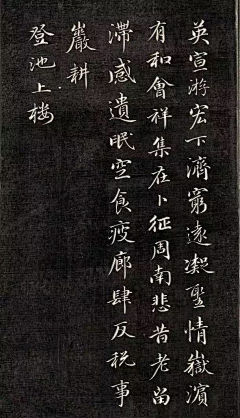 英宣游宏下濟窮遠凝聖情嶽濱
有和會祥集在卜征周南悲昔老留
滯感遺氓空食疲廊肆反稅事
巖耕
登池上楼